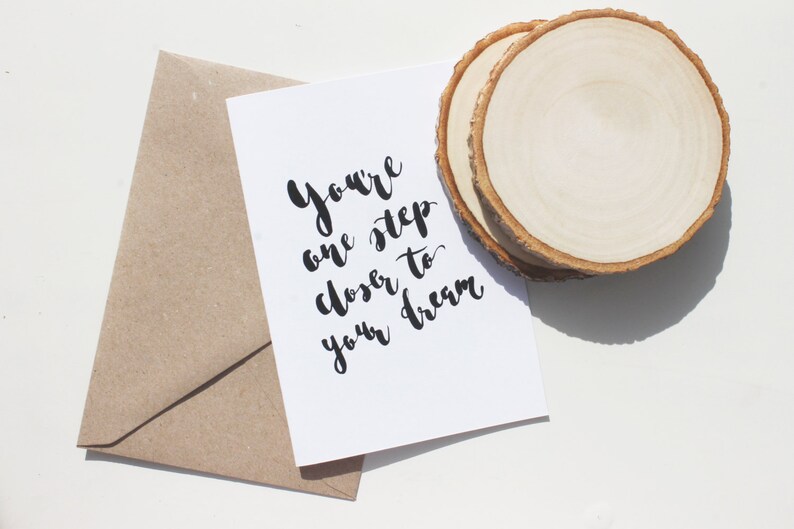 You're
one step
closer to
your dream